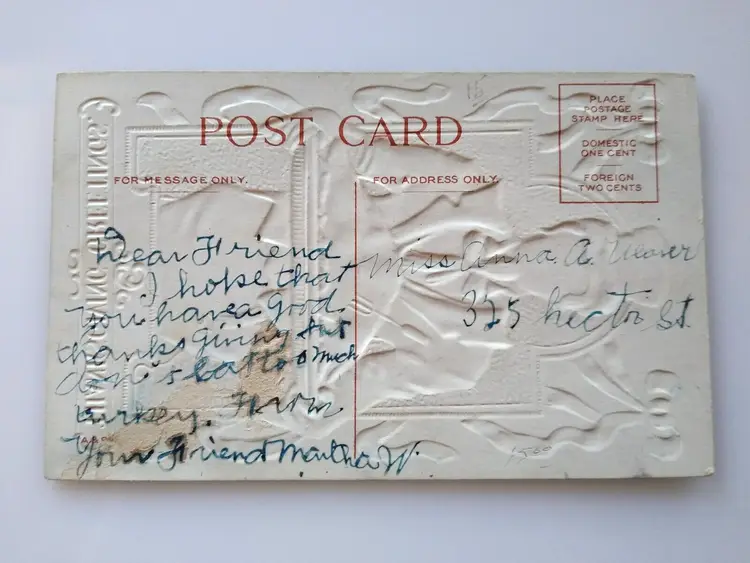 15
POST CARD
PLACE
POSTAGE
STAMP HERE
DOMESTIC
ONE CENT
FOREIGN
TWO CENTS
FOR MESSAGE ONLY.
FOR ADDRESS ONLY
Dear Friend
I hope that
you have a good
thanksgiving but
don't eat too much
turkey. From
Your Friend Martha W.
Miss Anna. A. Weaver
325 Hector St.